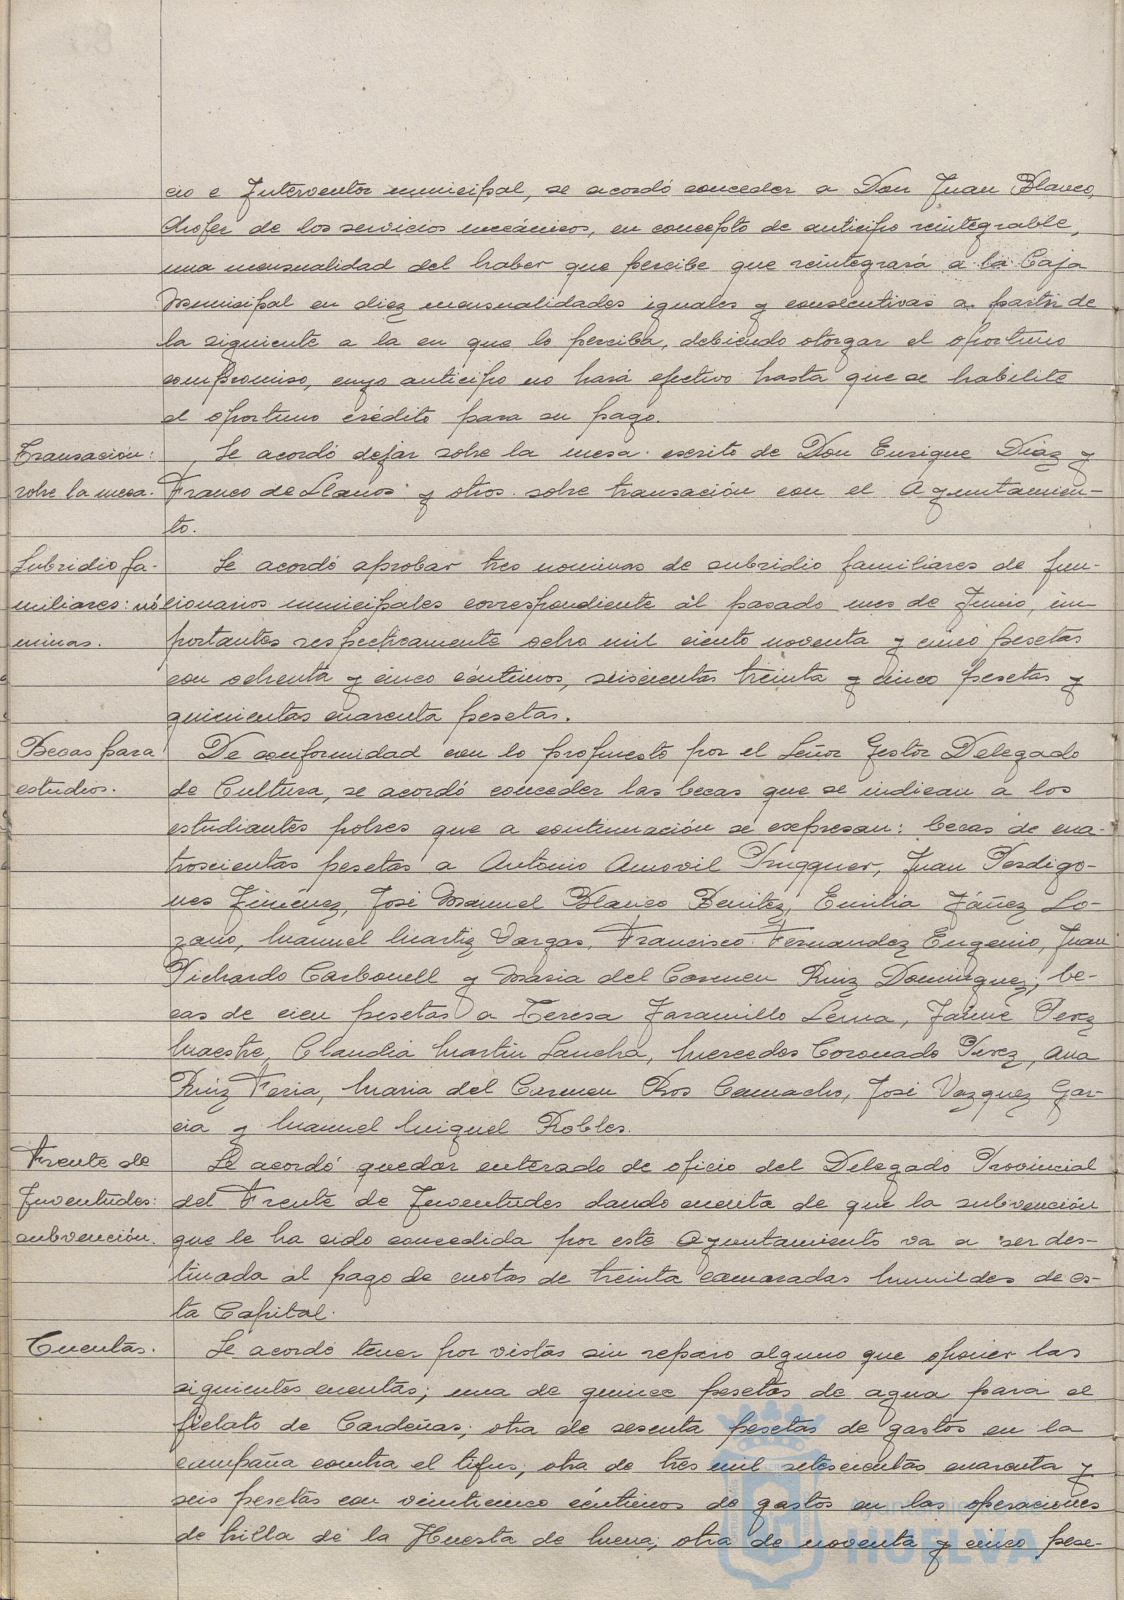 cio e Interventor municipal, se acordó conceder a Don Juan Blanco,
chofer de los servicios mecánicos, en concepto de anticipo reintegrable,
una mensualidad del haber que percibe que reintegrará a la Caja
Municipal en diez mensualidades iguales y consecutivas a partir de
la siguiente a la en que lo perciba, debiendo otorgar el oportuno
compromiso, cuyo anticipo no hará efectivo hasta que se habilite
el oportuno crédito para su pago.
Transación:
sobre la mesa.
Se acordó dejar sobre la mesa escrito de Don Enrique Díaz y
Franco de Llanos y otros sobre transación con el Ayuntamien-
to.
Subsidio fa-
miliares: nó
minas.
Se acordó aprobar tres nominas de subsidio familiares de fun-
cionarios municipales correspondiente al pasado mes de Junio, im-
portantes respectivamente ocho mil ciento noventa y cinco pesetas
con ochenta y cinco céntimos, seiscientas treinta y cinco pesetas y
quinientas cuarenta pesetas.
Becas para
estudios.
De conformidad con lo propuesto por el Señor Gestor Delegado
de Cultura, se acordó conceder las becas que se indican a los
estudiantes pobres que a continuación se expresan: becas de cua-
troscientas pesetas a Antonio Amovil Brugguer, Juan Perdigo-
nes Jiménez, José Manuel Blanco Benitez, Emilia Yáñez Lo-
zano, Manuel Martiz Vargas, Francisco Fernandez Eugenio, Juan
Pichardo Carbonell y Maria del Carmen Ruiz Dominguez; be-
cas de cien pesetas a Teresa Jaramillo Lema, Jaime Perez
Maestre, Claudia Martin Sancha, Mercedes Coronado Perez, Ana
Ruiz Feria, Maria del Carmen Ros Camacho, José Vazquez Gar-
cia y Manuel Miguel Robles.
Frente de
Juventudes:
subvención.
Se acordó quedar enterado de oficio del Delegado Provincial
del Frente de Juventudes dando cuenta de que la subvención
que le ha sido concedida por este Ayuntamiento va a ser des-
tinada al pago de cuotas de treinta camaradas humildes de es-
ta Capital.
Cuentas.
Se acordó tener por vistas sin reparo alguno que oponer las
siguientes cuentas; una de quince pesetas de agua para el
fielato de Cardeñas; otra de sesenta pesetas de gastos en la
campaña contra el tifus; otra de tres mil setescientas cuarenta y
seis pesetas con veinticinco céntimos de gastos en las operaciones
de trilla de la Huerta de Mena; otra de noventa y cinco pese-
Ayuntamiento de
HUELVA